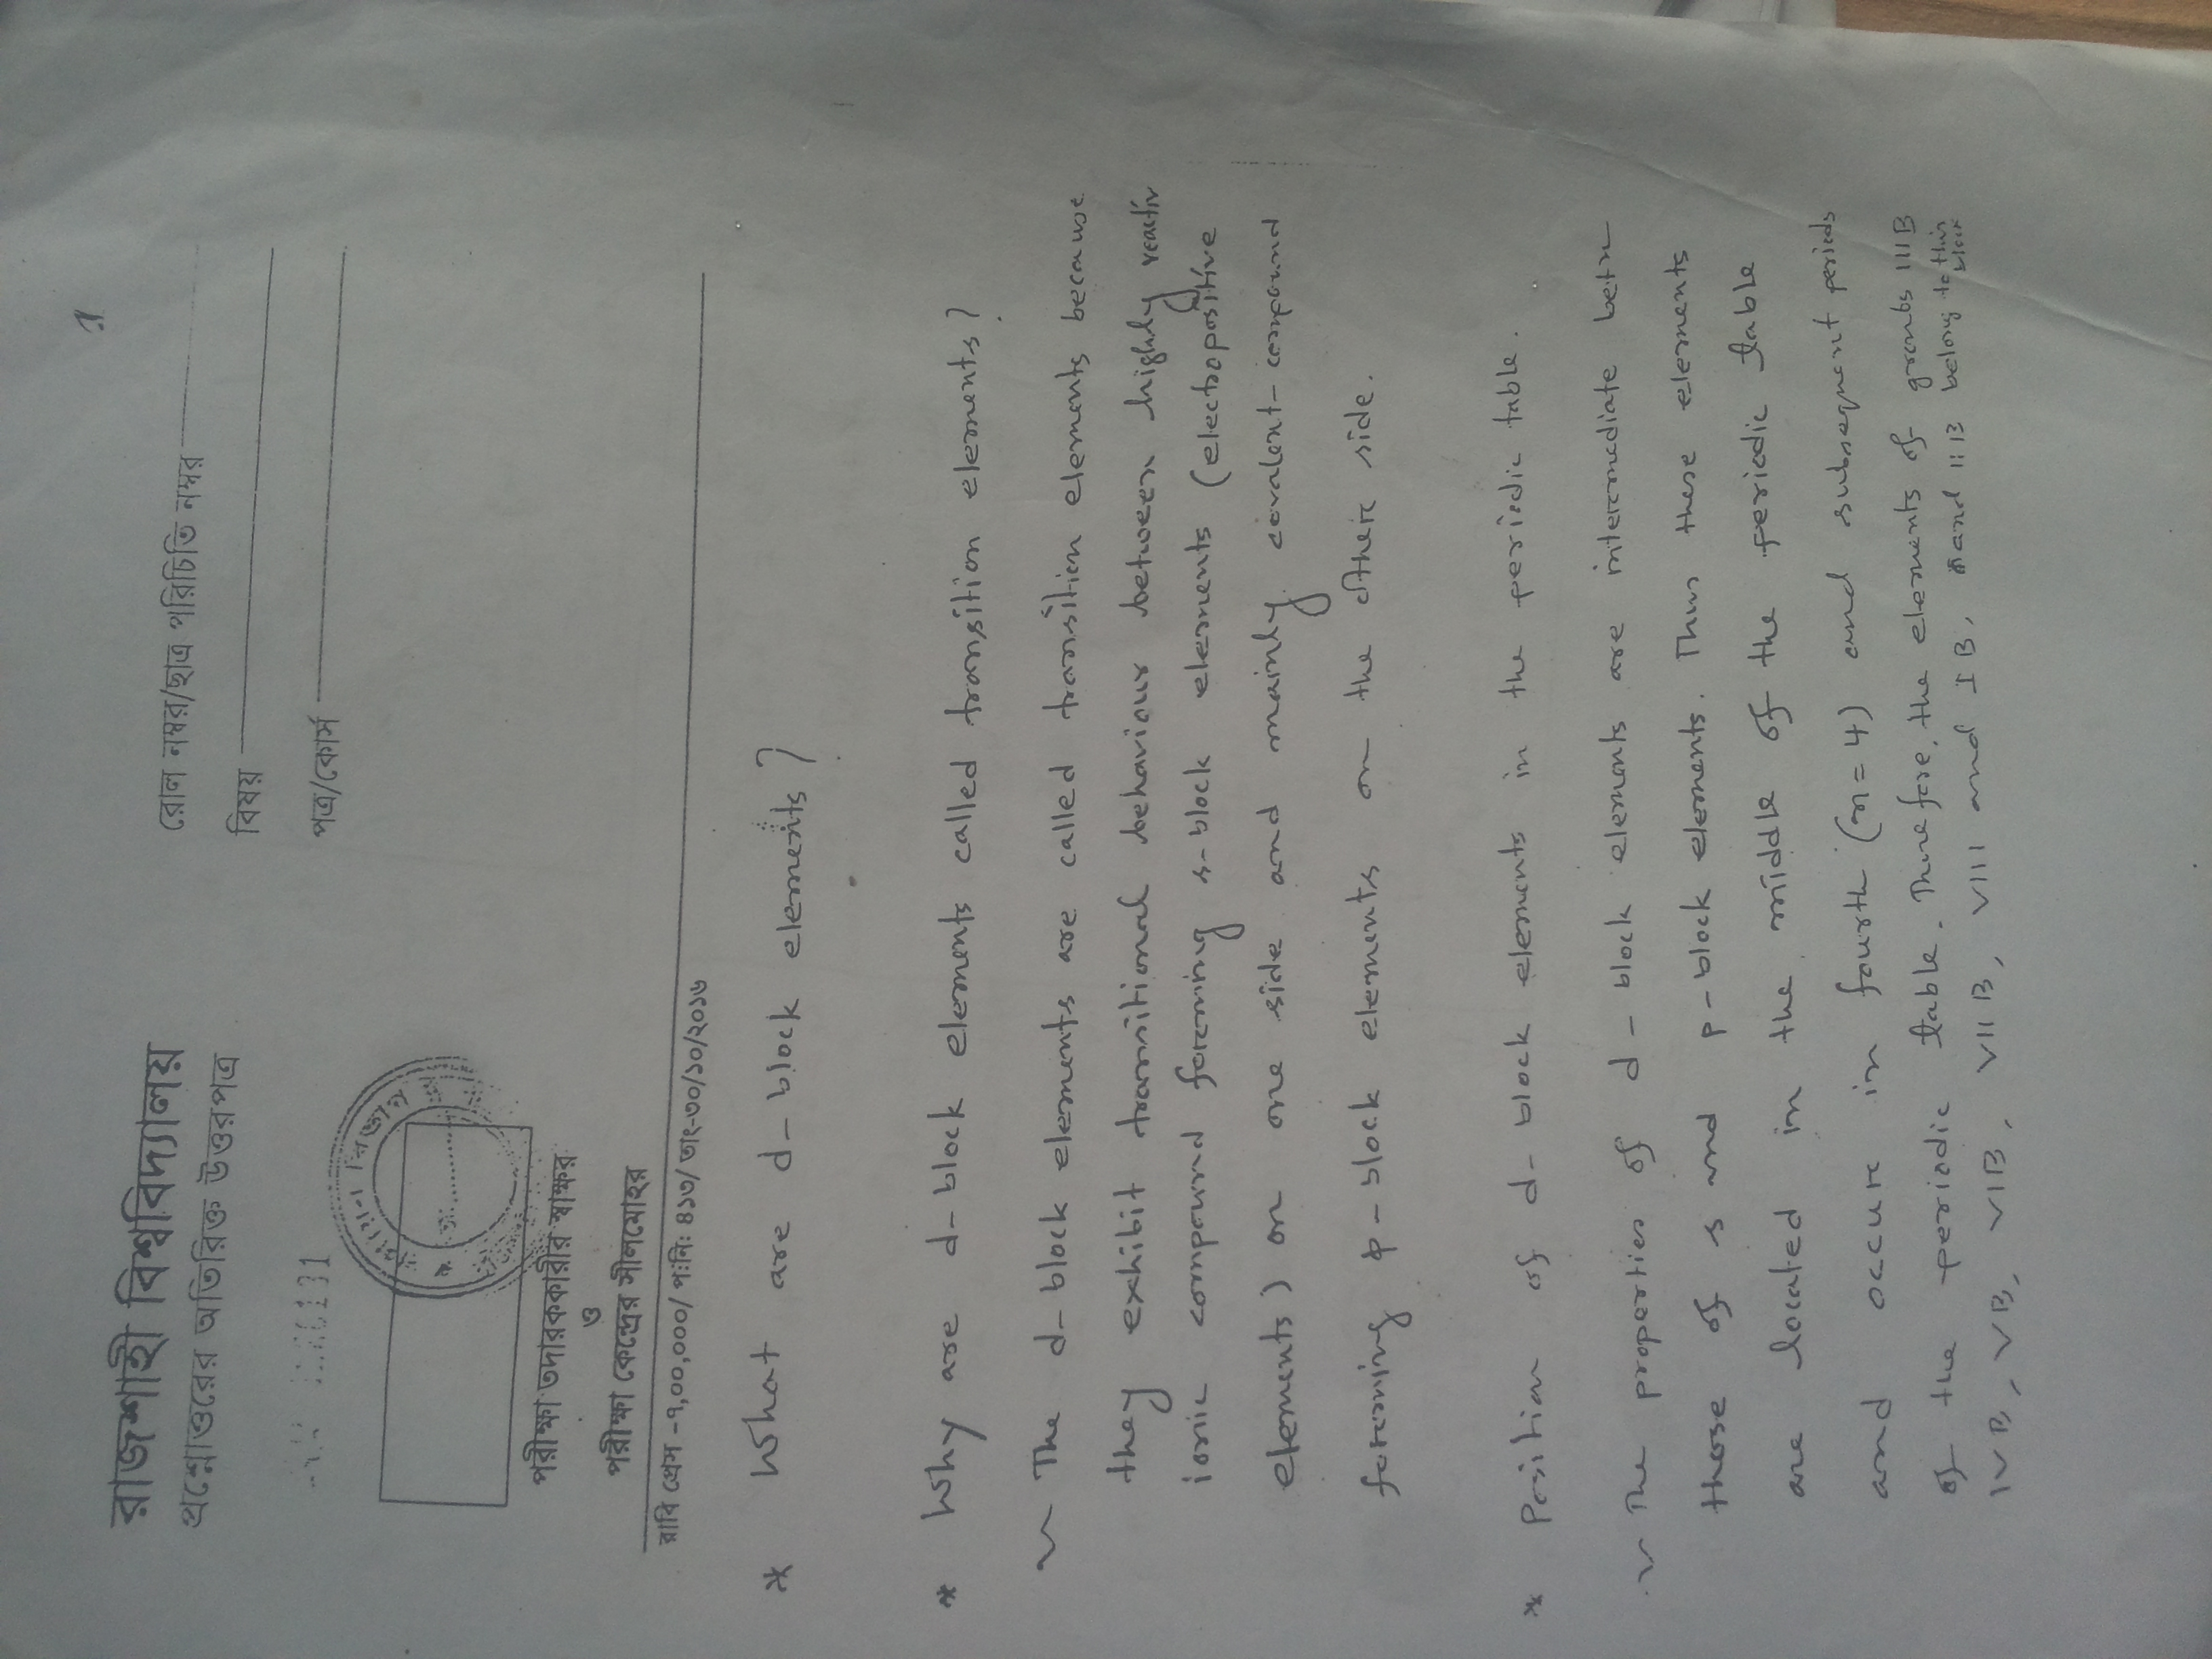 1
রাজশাহী বিশ্ববিদ্যালয়
প্রশ্নোত্তরের অতিরিক্ত উত্তরপত্র
রোল নম্বর/ছাত্র পরিচিতি নম্বর
বিষয়
পত্র/কোর্স
6131
রসায়ন বিভাগ
তাং
পরীক্ষা তদারককারীর স্বাক্ষর
ও
পরীক্ষা কেন্দ্রের সীলমোহর
রাবি প্রেস -৭,০০,০০০/ প:নি: ৪১৩/ তাং-৩০/১০/২০১৬
* What are d-block elements?
* Why are d-block elements called transition elements?
The d-block elements are called transition elements because
they exhibit transitional behaviour between highly reactiv
ionic compound foreming s-block elements (electropositive
elements) on one side and mainly covalent-compound
foreming p-block elements on the othere side.
* Position of d-block elements in the periodic table.
The properties of d-block elements are interemediate betn
those of s and p-block elements. Thus these elements
are located in the middle of the periodic table
and occure in fourth (n=4) and subsequent periods
of the periodic table. Therefore, the elements of groups IIIB
IVB, VB, VIB, VIIB, VIII and IB, and IIB belong to this block